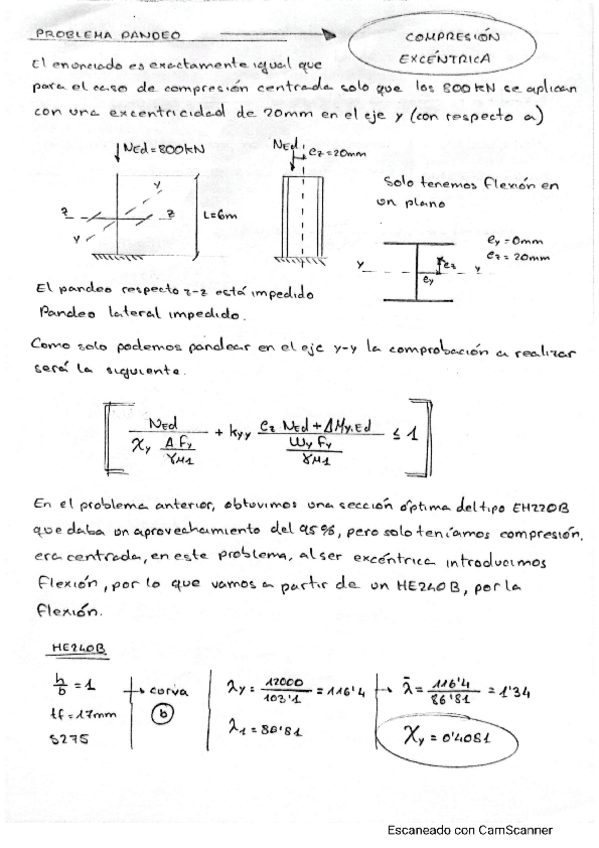 PROBLEMA PANDEO
COMPRESIÓN
EXCÉNTRICA
El enunciado es exactamente igual que
para el caso de compresión centrada solo que los 800kN se aplican
con una excentricidad de 20mm en el eje y (con respecto a)
NEd=800kN
NEd
ez=20mm
Solo tenemos flexión en
un plano
y
z
z
L=6m
y
ey=0mm
ez=20mm
y
ez
ey
y
El pandeo respecto z-z está impedido
Pandeo lateral impedido.
Como solo podemos pandear en el eje y-y la comprobación a realizar
será la siguiente.
NEd / (χy A fy / γM1) + kyy (ez NEd + ΔMy,Ed) / (Wy fy / γM1) ≤ 1
En el problema anterior, obtuvimos una sección óptima del tipo EH220B
que daba un aprovechamiento del 95%, pero solo teníamos compresión,
era centrada, en este problema, al ser excéntrica introducimos
flexión, por lo que vamos a partir de un HE240B, por la
flexión.
HE240B
h/b = 1
tf = 17mm
S275
→ curva
b
λy = 12000/103'1 = 116'4
λ1 = 86'81
→ λ̄ = 116'4/86'81 = 1'34
χy = 0'4081
Escaneado con CamScanner